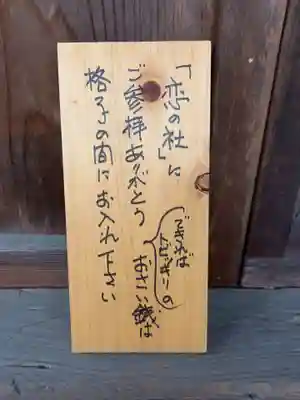 「恋の社」に
ご参拝ありがとう
(できれば
おさい銭は
格子の間にお入れ下さい